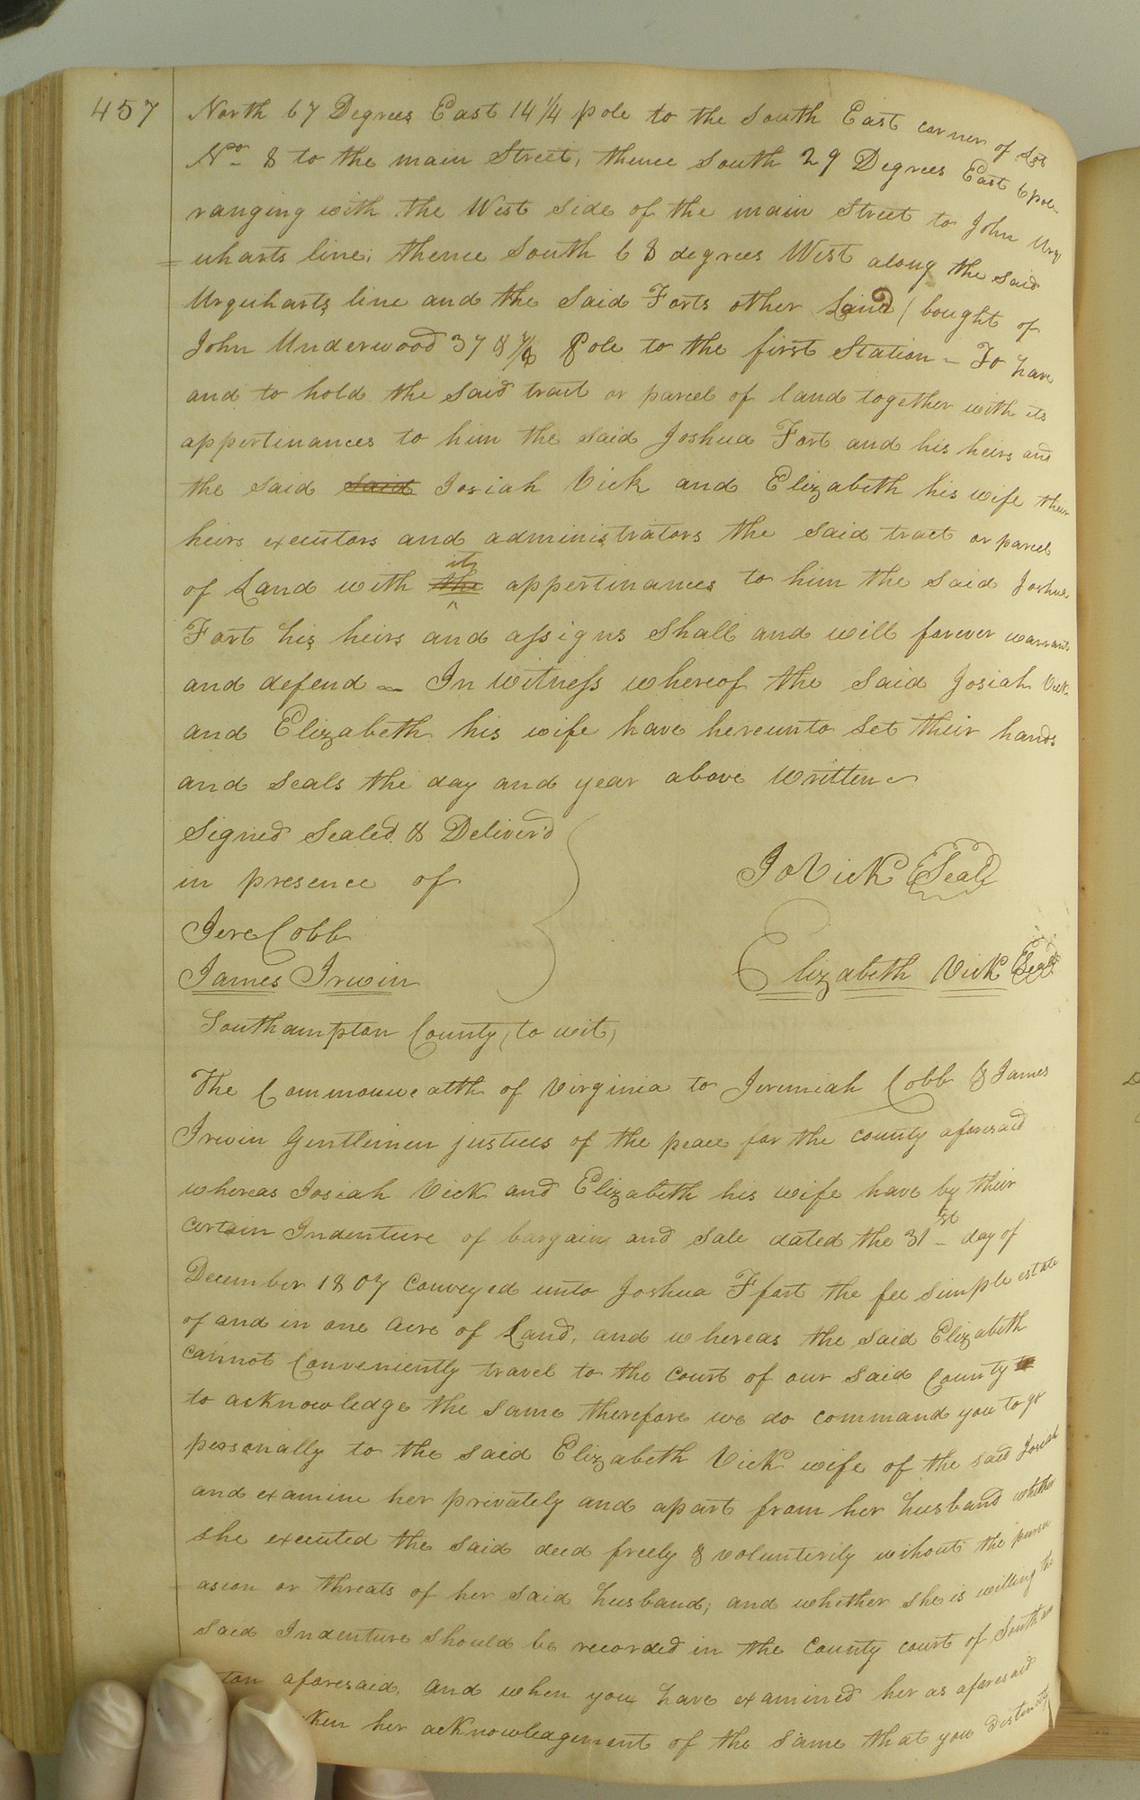 457
North 67 Degrees East 14 1/4 pole to the South East corner of Lot
No. 8 to the main Street, thence South 29 Degrees East 6 pole
ranging with the West side of the main Street to John Urq
=uharts line; thence South 68 degrees West along the said
Urquharts line and the said Forts other Land (bought of
John Underwood 37 8 7/8 Pole to the first Station - To have
and to hold the said tract or parcel of land together with its
appertinances to him the said Joshua Fort and his heirs and
the said said Josiah Vick and Elizabeth his wife their
heirs executors and administrators the said tract or parcel
its
of Land with the appertinances to him the said Joshua
Fort his heirs and assigns shall and will forever warrant
and defend - In witness whereof the said Josiah Vick
and Elizabeth his wife have hereunto set their hands
and seals the day and year above written
Signed Sealed & Deliver'd
in presence of
Jo Vick Seal
Jere Cobb
Elizabeth Vick Seal
James Irwin
Southampton County, to wit,
The Commonwealth of Virginia to Jeremiah Cobb & James
Irwin Gentlemen justices of the peace for the county aforesaid
whereas Josiah Vick and Elizabeth his wife have by their
certain Indenture of bargain and sale dated the 31st day of
December 1807 conveyed unto Joshua Ffort the fee simple estate
of and in one acre of Land, and whereas the said Elizabeth
cannot Conveniently travel to the court of our said County
to acknowledge the same therefore we do command you to go
personally to the said Elizabeth Vick wife of the said Josiah
and examine her privately and apart from her husband whether
she executed the said deed freely & volunterily wihout the persu
asion or threats of her said husband; and whether she is willing the
said Indenture should be recorded in the County court of Southam
ton aforesaid, and when you have examined her as aforesaid
ken her acknowledgement of the same that you distinctly